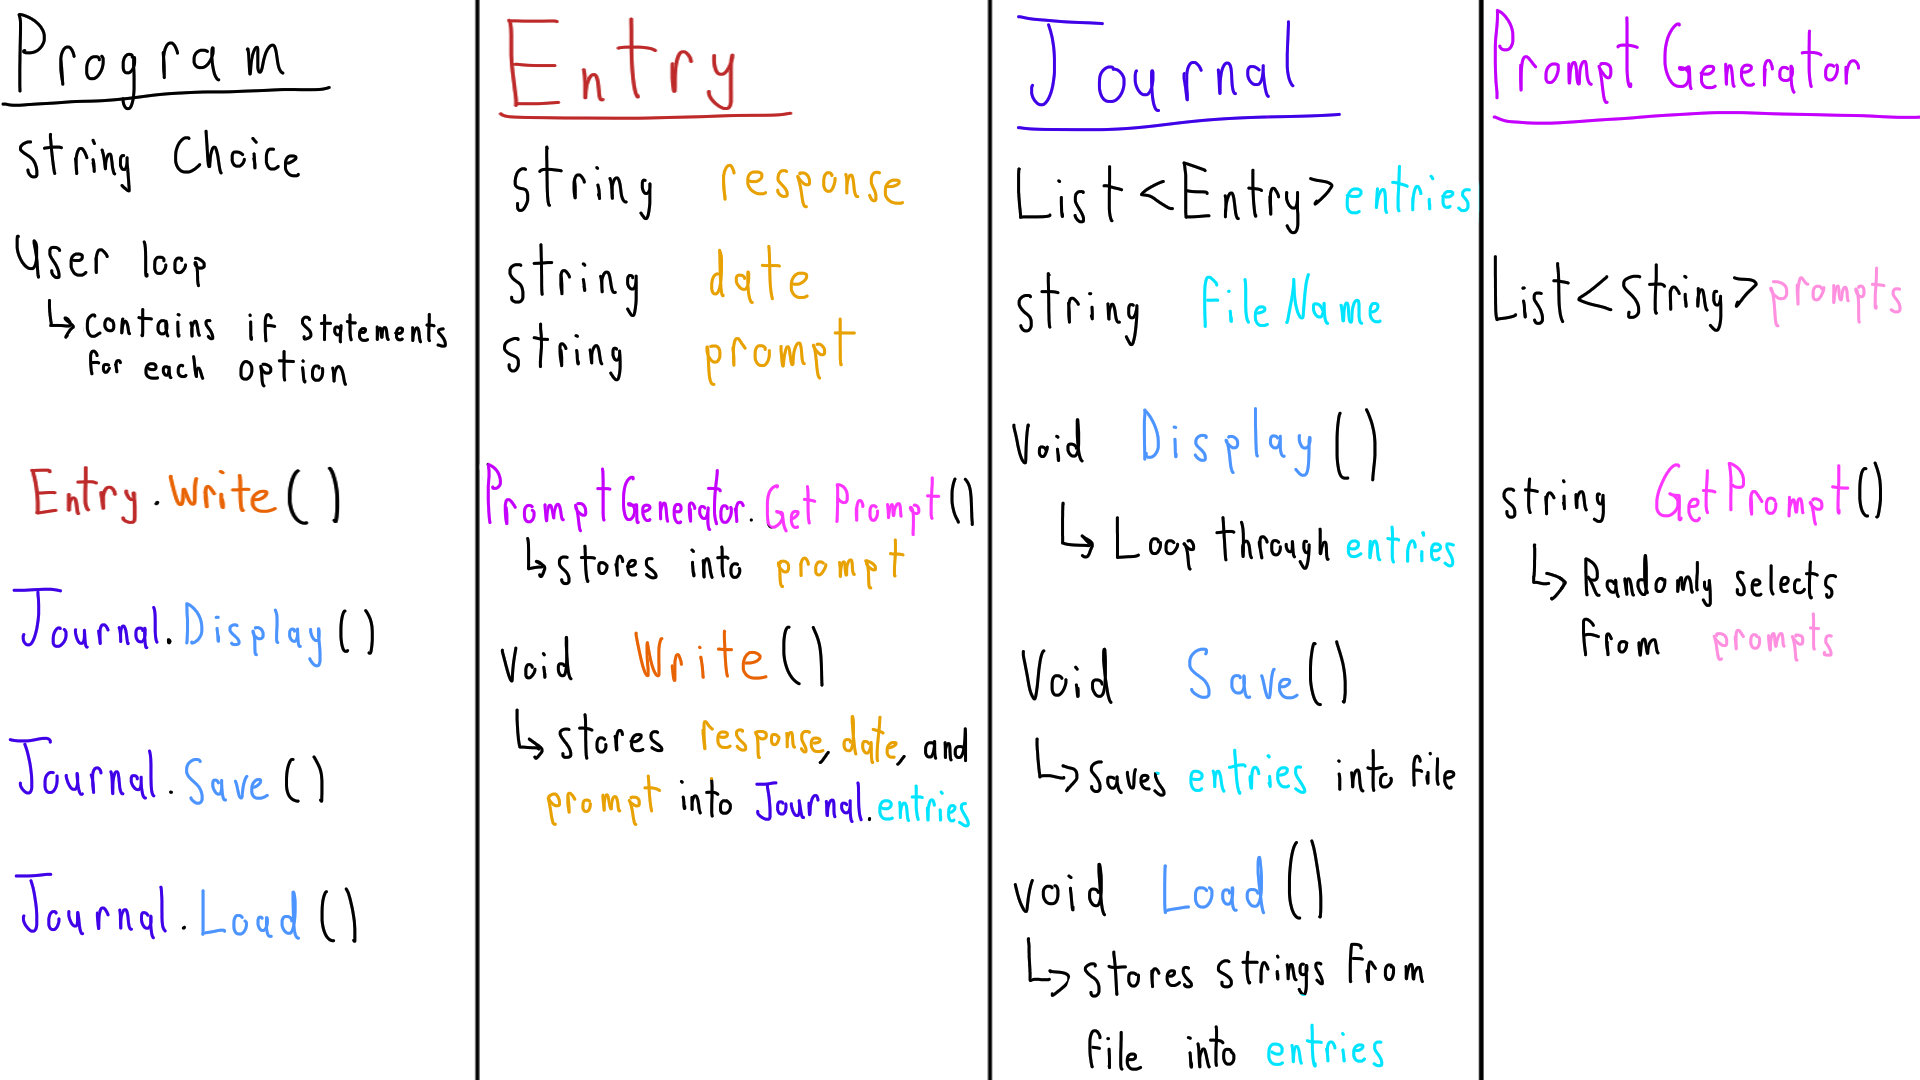 Program
string Choice
User loop
↳ contains if statements
for each option
Entry.Write()
Journal.Display()
Journal.Save()
Journal.Load()
Entry
string response
string date
string prompt
PromptGenerator.GetPrompt()
↳ stores into prompt
Void Write()
↳ stores response, date, and
prompt into Journal.entries
Journal
List<Entry> entries
string fileName
Void Display()
↳ Loop through entries
Void Save()
↳ Saves entries into file
void Load()
↳ stores strings from
file into entries
Prompt Generator
List<String> prompts
string GetPrompt()
↳ Randomly selects
from prompts